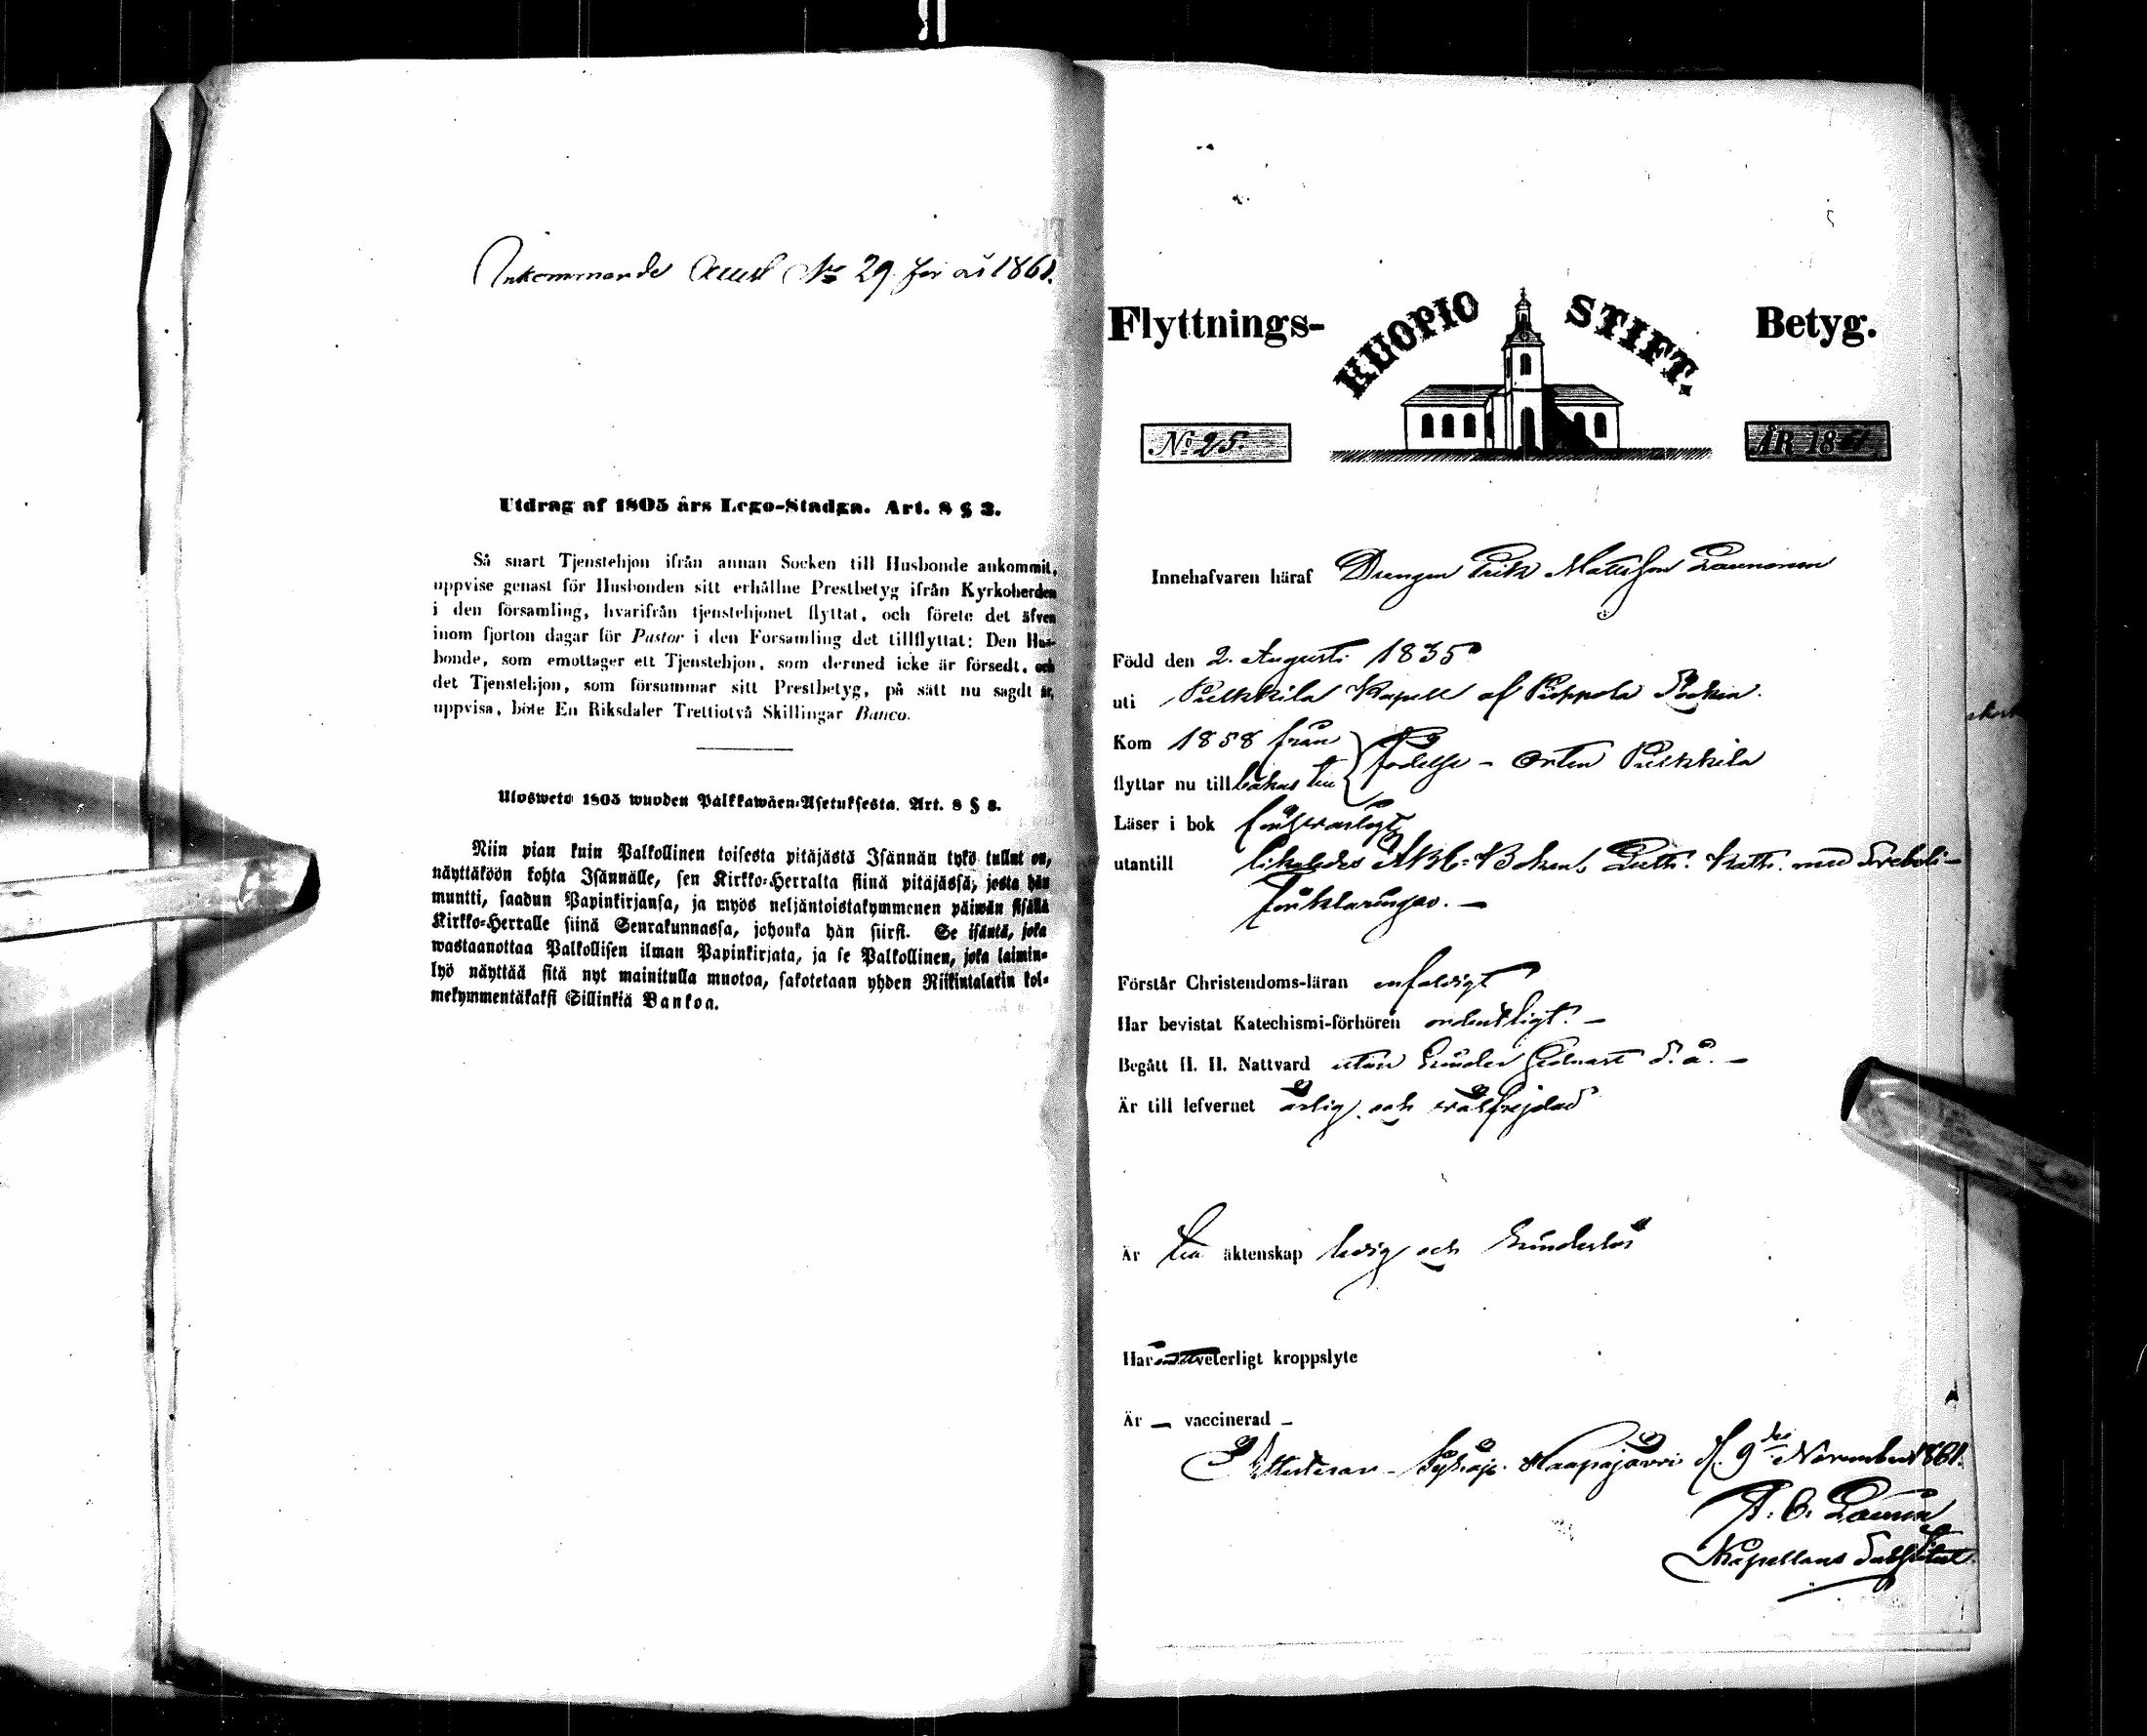 Inkommande Attest No 29 för år 1861.
Utdrag af 1805 års Lego-Stadga. Art. 8 § 3.
Så snart Tjenstehjon ifrån annan Socken till Husbonde ankommit,
uppvise genast för Husbonden sitt erhållne Prestbetyg ifrån Kyrkoherden
i den församling, hvarifrån tjenstehjonet flyttat, och förete det äfven
inom fjorton dagar för Pastor i den Forsamling det tillflyttat: Den Hus-
bonde, som emottager ett Tjenstehjon, som dermed icke är försedt, och
det Tjenstehjon, som försummar sitt Prestbetyg, på sätt nu sagdt är,
uppvisa, böte En Riksdaler Trettiotvå Skillingar Banco.
Ulosweto 1805 wuoden Palkkawäen-Asetuksesta. Art. 8 § 3.
Niin pian kuin Palkollinen toisesta pitäjästä Isännän tykö tullut on,
näyttäköön kohta Isännälle, sen Kirkko-Herralta siinä pitäjässä, josta hän
muutti, saadun Papinkirjansa, ja myös neljäntoistakymmenen päiwän sisällä
Kirkko-Herralle siinä Seurakunnassa, johonka hän siirsi. Se isäntä, joka
wastaanottaa Palkollisen ilman Papinkirjata, ja se Palkollinen, joka laimin-
lyö näyttää sitä nyt mainitulla muotoa, sakotetaan yhden Riikintalarin kol-
mekymmentäkaksi Sillinkiä Bankoa.
Flyttnings- KUOPIO STIFT. Betyg.
No 25. ÅR 1861
Innehafvaren häraf Drengen Erik Mattsson Launonen
Född den 2. Augusti 1835
uti Pulkkila Kapell af Piippola Socken.
Kom 1858 från
födelse-orten Pulkkila
flyttar nu till bakas till
Läser i bok försvarligt
utantill likaledes ABC-Boken, Luth. Kath. med Svebeli-
förklaringar. —
Förstår Christendoms-läran enfaldigt
Har bevistat Katechismi-förhören ordentligt. —
Begått H. H. Nattvard utan hinder sednast d. å. —
Är till lefvernet ärlig och välfrejdad
Är till äktenskap ledig och hinderlös
Har ett veterligt kroppslyte
Är — vaccinerad —
Haapajärvi d. 9de November 1861.
Kapellans Substitut.